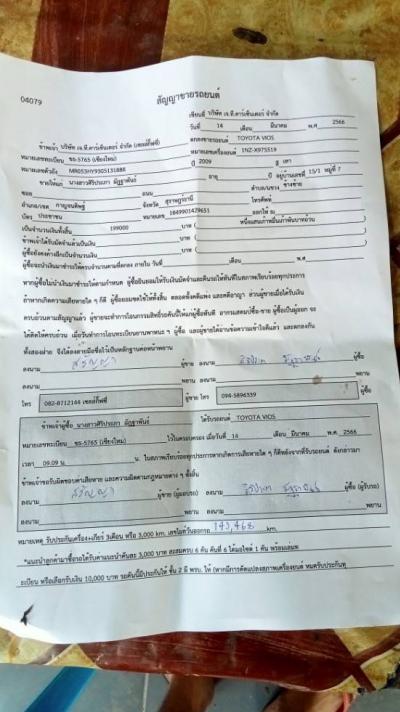 04079
สัญญาขายรถยนต์
เขียนที่ บริษัท เจ.ที.คาร์เซ็นเตอร์ จำกัด
วันที่ 14 เดือน มีนาคม พ.ศ 2566
ข้าพเจ้า บริษัท เจ.ที.คาร์เซ็นเตอร์ จำกัด (เซลล์กิ๊ฟซี่) ตกลงขายรถยนต์ TOYOTA VIOS
หมายเลขทะเบียน ขธ-5765 (เชียงใหม่) หมายเลขเครื่องยนต์ 1NZ-X975519
หมายเลขตัวถัง MR053HY9305131888 ปี 2009 สี เทา
ขายให้แก่ นางสาวศิริประภา อายุ ปี อยู่บ้านเลขที่ 15/1 หมู่ที่ 7
ซอย ถนน ตำบล/แขวง ช้างซ้าย
อำเภอ/เขต กาญจนดิษฐ์ จังหวัด สุราษฎร์ธานี โทรศัพท์
บัตร ประชาชน หมายเลข 1849901429651 ออกให้ ณ
เป็นจำนวนเงินทั้งสิ้น 199000 บาท ( หนึ่งแสนเก้าหมื่นเก้าพันบาทถ้วน )
ข้าพเจ้าได้รับมัดจำแล้วเป็นเงิน บาท ( )
ผู้ซื้อยังคงค้างอีกเป็นจำนวนเงิน บาท ( )
ผู้ซื้อจะนำเงินมาชำระให้ครบจำนวนตามที่ตกลง ภายใน วันที่ เดือน พ.ศ.
หากผู้ซื้อไม่นำเงินมาชำระให้ตามกำหนด ผู้ซื้อยินยอมให้รับเงินมัดจำและคืนรถให้ทันทีในสภาพเรียบร้อยทุกประการ
ถ้าหากเกิดความเสียหายใด ๆ ก็ดี ผู้ซื้อยอมชดใช้ให้ทั้งสิ้น ตลอดทั้งคดีแพ่ง และคดีอาญา ส่วนผู้ขายเมื่อได้รับเงิน
ครบถ้วนตามสัญญาแล้ว ผู้ขายจะทำการโอนกรรมสิทธิ์รถคันนี้ให้แก่ผู้ซื้อทันที อากรแสตมป์ซื้อ-ขาย ผู้ซื้อเป็นผู้ออก จะ
ให้ติดให้ครบถ้วน เมื่อวันทำการโอนทะเบียนยานพาหนะ ๆ ผู้ซื้อ และผู้ขายได้อ่านข้อความเข้าใจดีแล้ว และตกลงกัน
ทั้งสองฝ่าย จึงได้ลงลายมือชื่อไว้เป็นหลักฐานต่อหน้าพยาน
ลงนาม ผู้ขาย ลงนาม ผู้ซื้อ
ลงนาม พยาน ลงนาม พยาน
โทร 082-8712144 เซลล์กิ๊ฟซี่ ผู้ขาย โทร 094-5896339 ผู้ซื้อ
ข้าพเจ้าผู้ซื้อ นางสาวศิริประภา ได้รับรถยนต์ TOYOTA VIOS
หมายเลขทะเบียน ขธ-5765 (เชียงใหม่) ไว้ในครอบครอง เมื่อวันที่ 14 เดือน มีนาคม พ.ศ. 2566
เวลา 09.09 น. น. ในสภาพเรียบร้อยทุกประการหากเกิดการเสียหายใด ๆ ก็ดีหลังจากที่รับรถยนต์ ดังกล่าวมา
ข้าพเจ้าขอรับผิดชอบค่าเสียหาย และความผิดตามกฎหมายต่าง ๆ ทั้งสิ้น
ลงนาม ผู้ขาย (ผู้มอบรถ) ลงนาม ผู้ซื้อ (ผู้รับรถ)
ลงนาม พยาน ลงนาม พยาน
หมายเหตุ รับประกันเครื่อง+เกียร์ 3เดือน หรือ 3,000 km. เลขไมล์วันออกรถ 143,468 km.
*แนะนำลูกค้ามาซื้อรถได้รับค่าแนะนำคันละ 3,000 บาท สะสมครบ 6 คัน คันที่ 6 ได้มอไซค์ 1 คัน พร้อมเล่มท
ะเบียน หรือเลือกรับเงิน 10,000 บาท รถคันนี้มีประกันให้ ชั้น 2 มี พรบ. ให้ (หากมีการดัดแปลงสภาพเครื่องยนต์ หมดรับประกันทุ